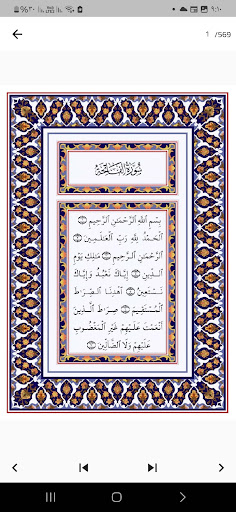 ٩:١٠
1 /569
سُورَةُ ٱلْفَاتِحَةِ
بِسْمِ ٱللَّهِ ٱلرَّحْمَٰنِ ٱلرَّحِيمِ ۝١
ٱلْحَمْدُ لِلَّهِ رَبِّ ٱلْعَٰلَمِينَ ۝٢
ٱلرَّحْمَٰنِ ٱلرَّحِيمِ ۝٣ مَٰلِكِ يَوْمِ
ٱلدِّينِ ۝٤ إِيَّاكَ نَعْبُدُ وَإِيَّاكَ
نَسْتَعِينُ ۝٥ ٱهْدِنَا ٱلصِّرَٰطَ
ٱلْمُسْتَقِيمَ ۝٦ صِرَٰطَ ٱلَّذِينَ
أَنْعَمْتَ عَلَيْهِمْ غَيْرِ ٱلْمَغْضُوبِ
عَلَيْهِمْ وَلَا ٱلضَّآلِّينَ ۝٧